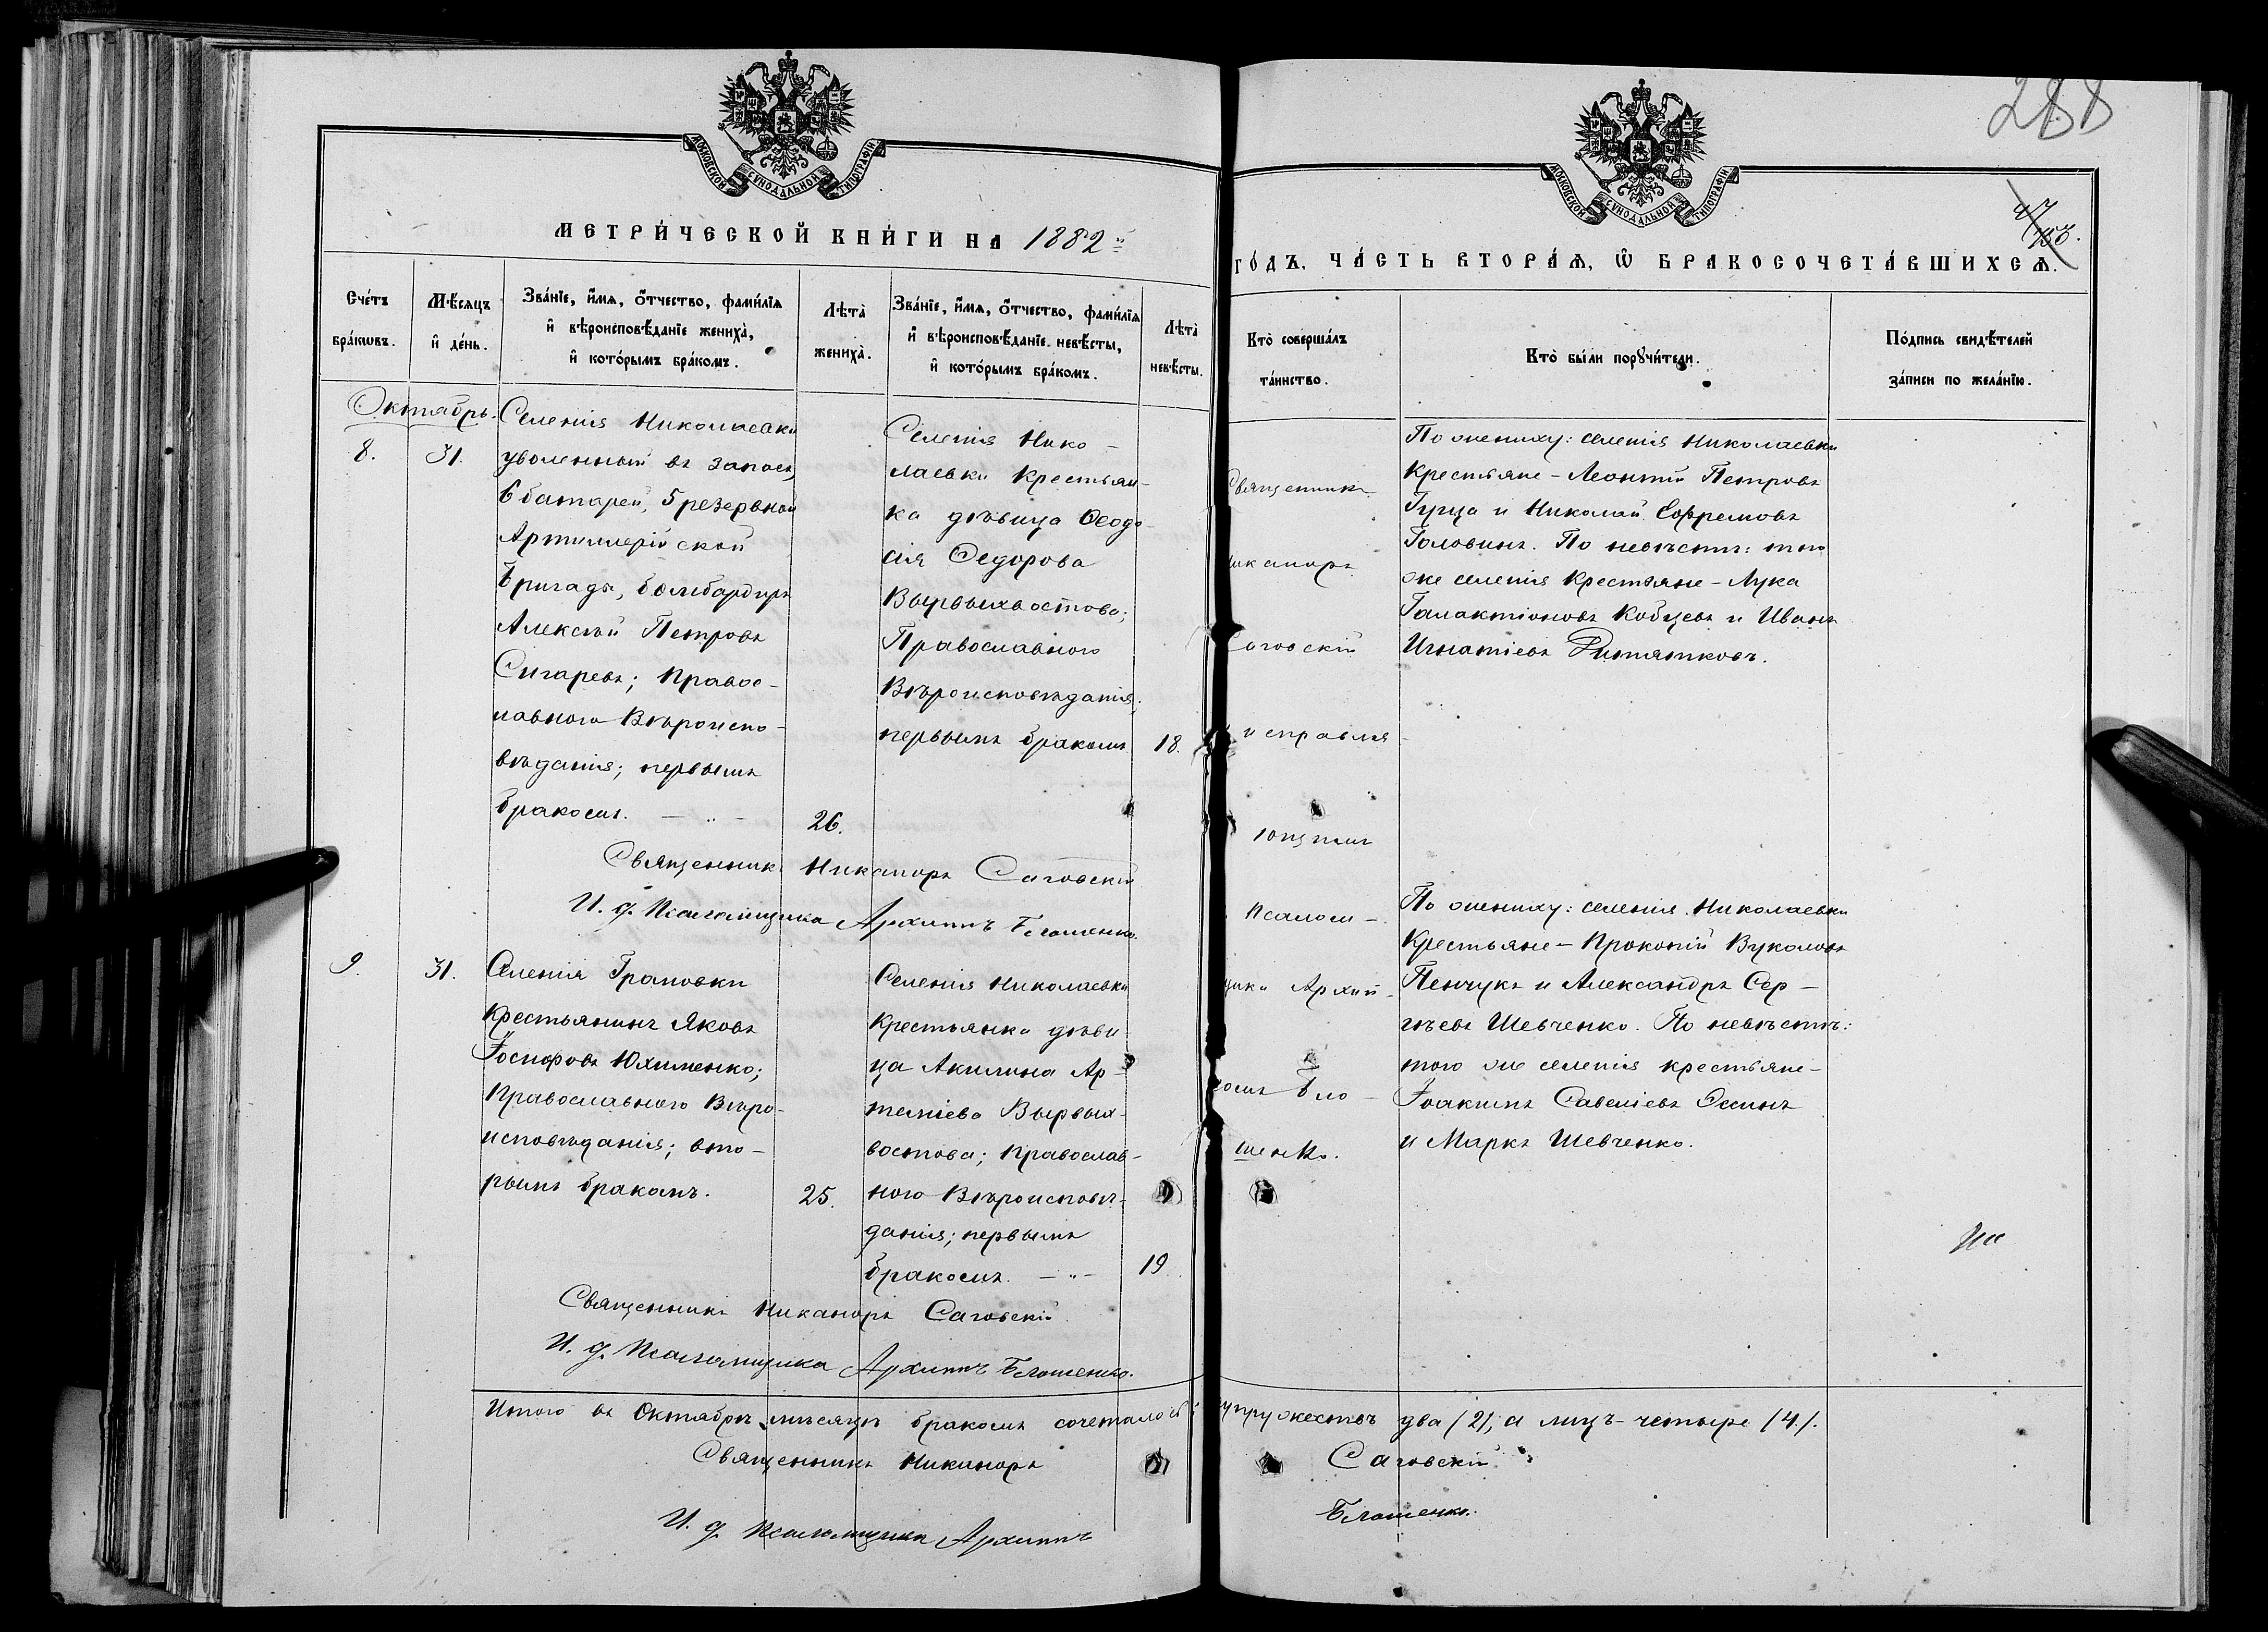 288
МОСКОВСКОЙ СѴНОДАЛЬНОЙ ТИПОГРАФІИ
МОСКОВСКОЙ СѴНОДАЛЬНОЙ ТИПОГРАФІИ
МЕТРИ́ЧЕСКОЙ КНИ́ГИ НА 1882й
ГО́ДЪ, ЧА́СТЬ ВТОРА́Ѧ, Ѽ БРАКОСОЧЕТА́ВШИХСѦ.
Сче́тъ
бра́кѡвъ.
Мѣ́сѧцъ
и҆ де́нь.
Зва́нїе, и҆́мѧ, ѻ҆́тчество, фами́лїѧ
и҆ вѣроисповѣ́данїе жениха̀,
и҆ кото́рымъ бра́комъ.
Лѣта̀
жениха̀.
Зва́нїе, и҆́мѧ, ѻ҆́тчество, фами́лїѧ
и҆ вѣроисповѣ́данїе невѣ́сты,
и҆ кото́рымъ бра́комъ.
Лѣта̀
невѣ́сты.
Кто̀ соверша́лъ
та́инство.
Кто̀ бы́ли порꙋчи́тели.
По́дпись свидѣ́телей
за́писи по жела́нїю.
Октябрь.
8.
31.
Селенія Николаевки
уволенный въ запасъ,
6 батареи, 5 резервной
Артиллерійской
Бригады, бомбардиръ
Алексѣй Петровъ
Сигаревъ; Правос-
лавного Вѣроиспо-
вѣданія; первымъ
бракомъ. — „ —
26.
Селенія Нико-
лаевки крестьян-
ка дѣвица Ѳеодо-
сія Федорова
Вырвыхвостова;
Православного
Вѣроисповѣданія;
первымъ бракомъ
18.
Священникъ
Никаноръ
Саговскій
и исправля-
ющимъ
Псалом-
щика Архип-
помъ Бло-
шенко.
По жениху: селенія Николаевки
Крестьяне – Леонтій Петровъ
Гуща и Николай Софремовъ
Головинъ. По невѣстѣ: того
же селенія Крестьяне – Лука
Галактіоновъ Кобцевъ и Иванъ
Игнатіевъ
Священникъ Никаноръ Саговскій
И. д. Псаломщика Архиппъ Блошенко.
9.
31.
Селенія Грановки
Крестьянинъ Яковъ
Іосифовъ Юхименко;
Православного Вѣро-
исповѣданія; вто-
рымъ бракомъ.
25.
Селенія Николаевки
Крестьянка дѣви-
ца Акилина Ар-
теміева Вырвых-
востова; Православ-
ного Вѣроисповѣ-
данія; первымъ
бракомъ. — „ —
19.
По жениху: селенія Николаевки
Крестьяне – Прокопій Вуколовъ
Пенчукъ и Александръ Сер-
гѣевъ Шевченко. По невѣстѣ:
того же селенія крестьяне –
Іоакимъ Савеліевъ Есинъ
и Маркъ Шевченко.
Священникъ Никаноръ Саговскій
И. д. Псаломщика Архиппъ Блошенко.
Итого въ Октябрѣ мѣсяцѣ бракомъ сочеталось супружествъ два /2/, а лицъ – четыре /4/.
Священникъ Никаноръ Саговскій
И. д. Псаломщика Архиппъ Блошенко.